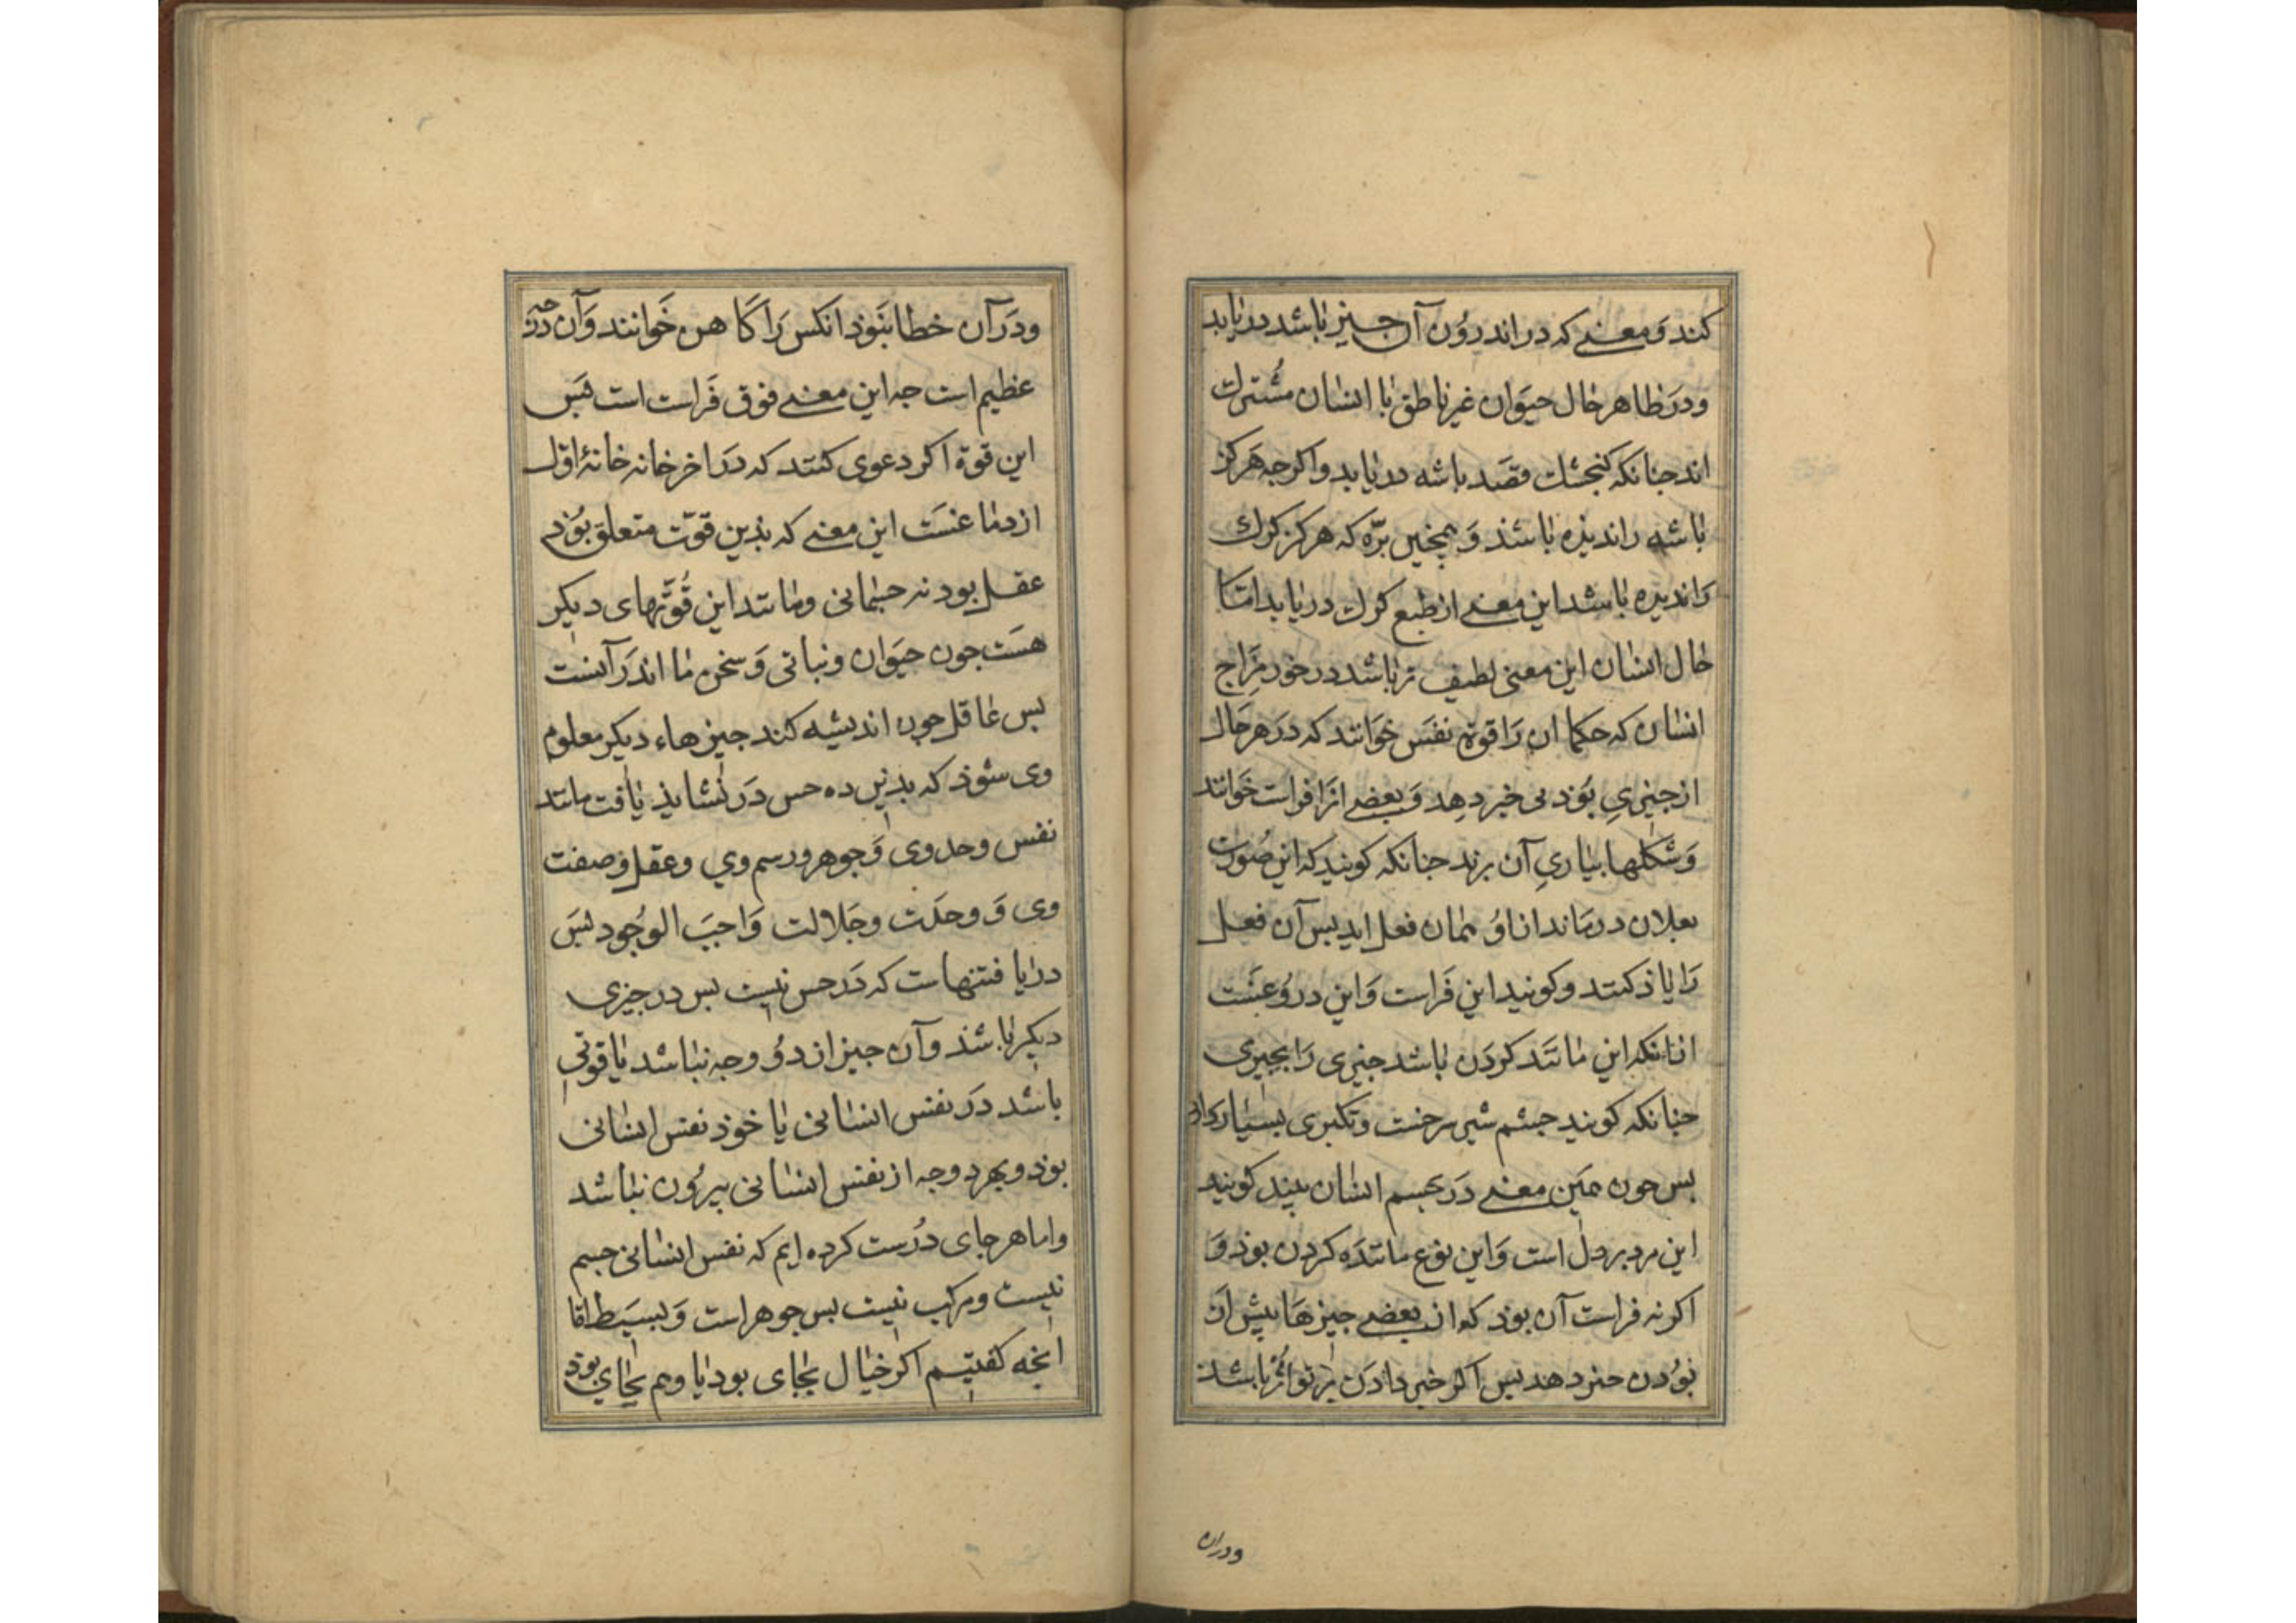 کند و معنی که در اندرون آن جیز باشد دریابد
ودر ظاهر حال حیوان غیر ناطق با انسان مشترك
اند جنانکه کنجشك قصد باشه دریابد واکرجه هرکز
باشه را ندیذه باشذ و همجنین برّه که هرکز کرك
را ندیده باشد این معنی از طبع کرك دریابد امّا
حال انسان این معنی لطیف تر باشد در خور مزاج
انسان که حکما ان را قوة نفس خوانند که در هر حال
از جیزیِ بوذنی خبر دهد و بعضی انرا فراست خوانند
و شکلها بیاریِ آن برند جنانکه کویند که این صورت
بفلان درماند اناو همان فعل اید بس آن فعل
را یاذ کنند و کویند این فراست و این دروغست
ازانکه این مانند کردن باشد جیزی را بجیزی
جنانکه کویند جشم شیر سرخست و تکبری بسیار دارد
بس جون همین معنی در جسم انسان بیند کویند
این مرد بردل است و این نوع مانندَه کردن بوذ و
اکرنه فراست آن بوذ که از بعضی جیزها بیش از
بوُدن خبر دهد بس اکر خبر دادن بر تواتر باشذ
ودران
ودر آن خطا نبوذ انکس را کاهن خوانند و آن
عظیم است جه این معنی فوق فراست است بس
این قوة اکر دعوی کنند که در اخر خانه خانهٔ اوّل
از دماغست این معنی که بذین قوّت متعلق بوذ
عقل بود نه جسمانی و مانند این قُوّتهای دیکر
هست جون حیوان و نباتی و سخن ما اندر آنست
بس عاقل جون اندیشه کند جیزهاء دیکر معلوم
وی شوذ که بدین ده حس در نشایذ یافت مانند
نفس وحد وی و جوهر ورسم وي وعقل وصفت
وی و وحدت وجلالت واجب الوجود بس
دریافتنهاست که در حس نیست بس در جیزی
دیکر باشذ وآن جیز از دوُ وجه نباشد یا قوتی
باشد در نفس انسانی یا خوذ نفس انسانی
بوذ وبهر دوجه از نفس انسانی بیرون نباشد
واما هرجای دُرست کرده ایم که نفس انسانی جسم
نیست ومرکب نیست بس جوهر است و بسیط امّا
انجه کفتیم اکر خیال بجای بود یا وهم بجاي بود